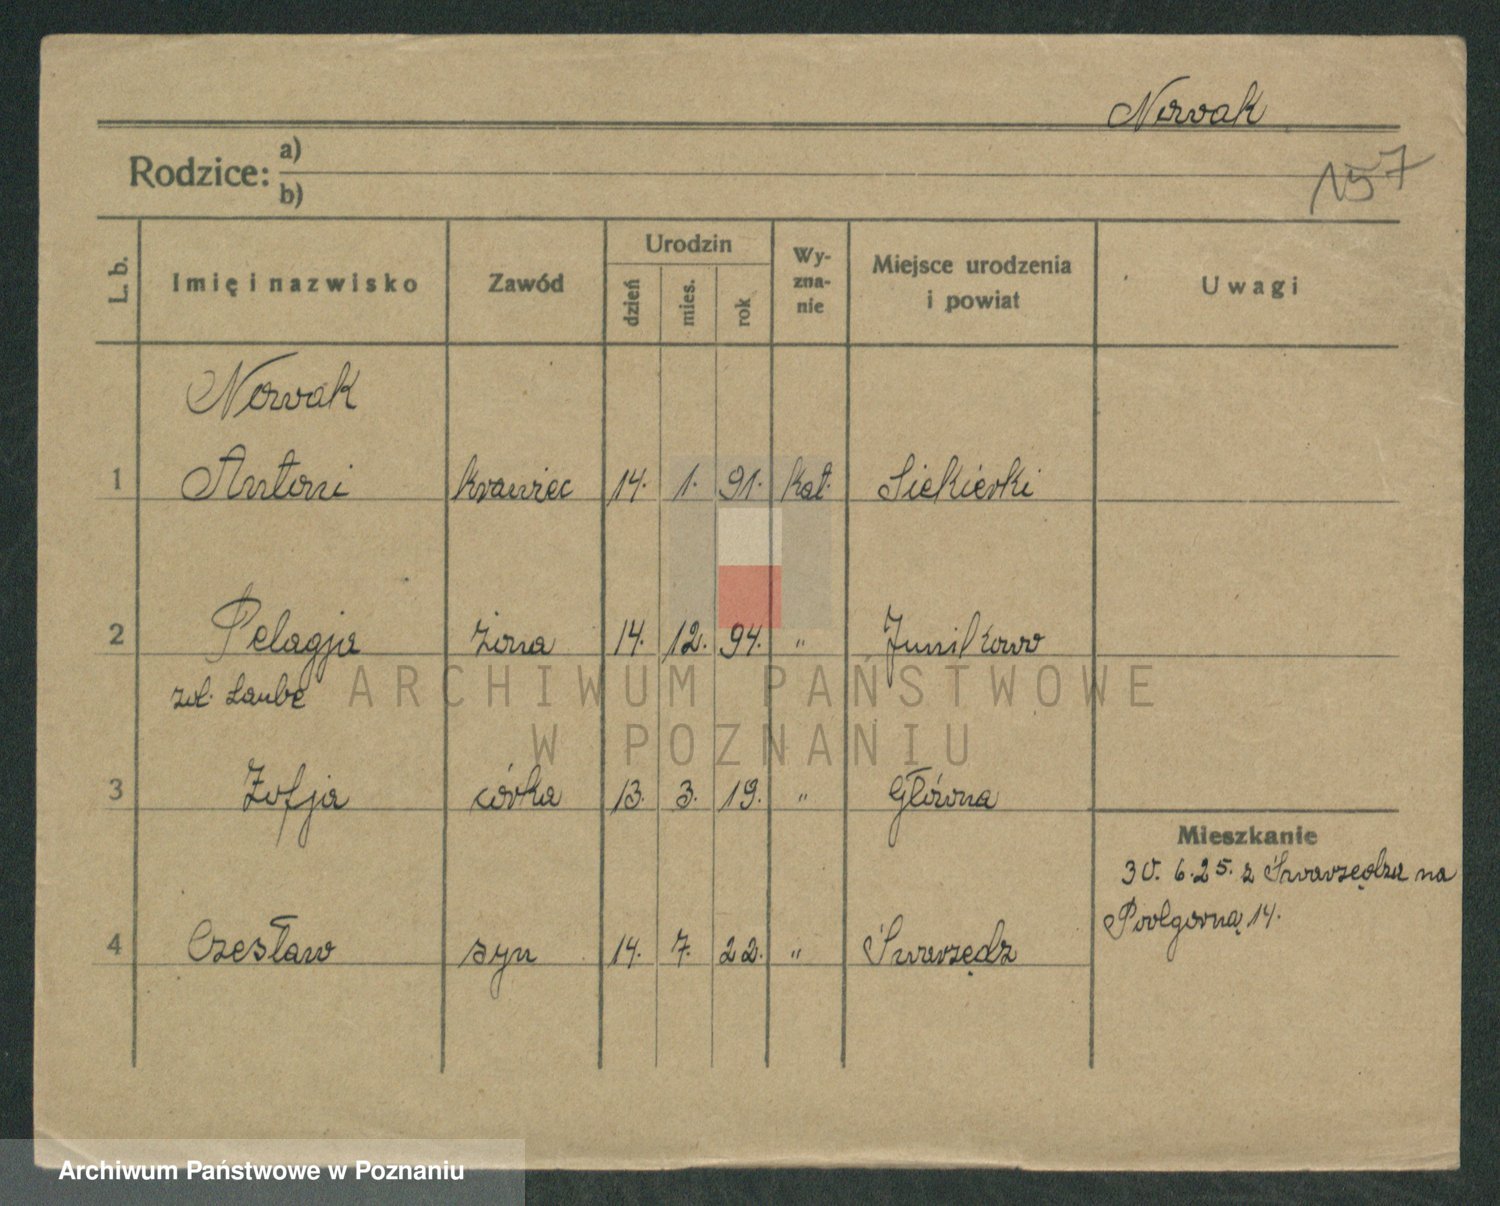 Nowak
Rodzice: a)
b)
157
L. b.
Imię i nazwisko
Zawód
Urodzin
dzień
mies.
rok
Wy-
zna-
nie
Miejsce urodzenia
i powiat
Uwagi
Nowak
1 Antoni krawiec 14. 1. 91. kat. Siekierki
2 Pelagja żona 14. 12. 94. " Junikowo
ARCHIWUM PAŃSTWOWE
W POZNANIU
3 Zofja córka 13. 3. 19. " Główna
Mieszkanie
30. 6. 25. z Swarzędza na
Podgórną 14.
4 Czesław syn 14. 7. 22. " Swarzędz
Archiwum Państwowe w Poznaniu